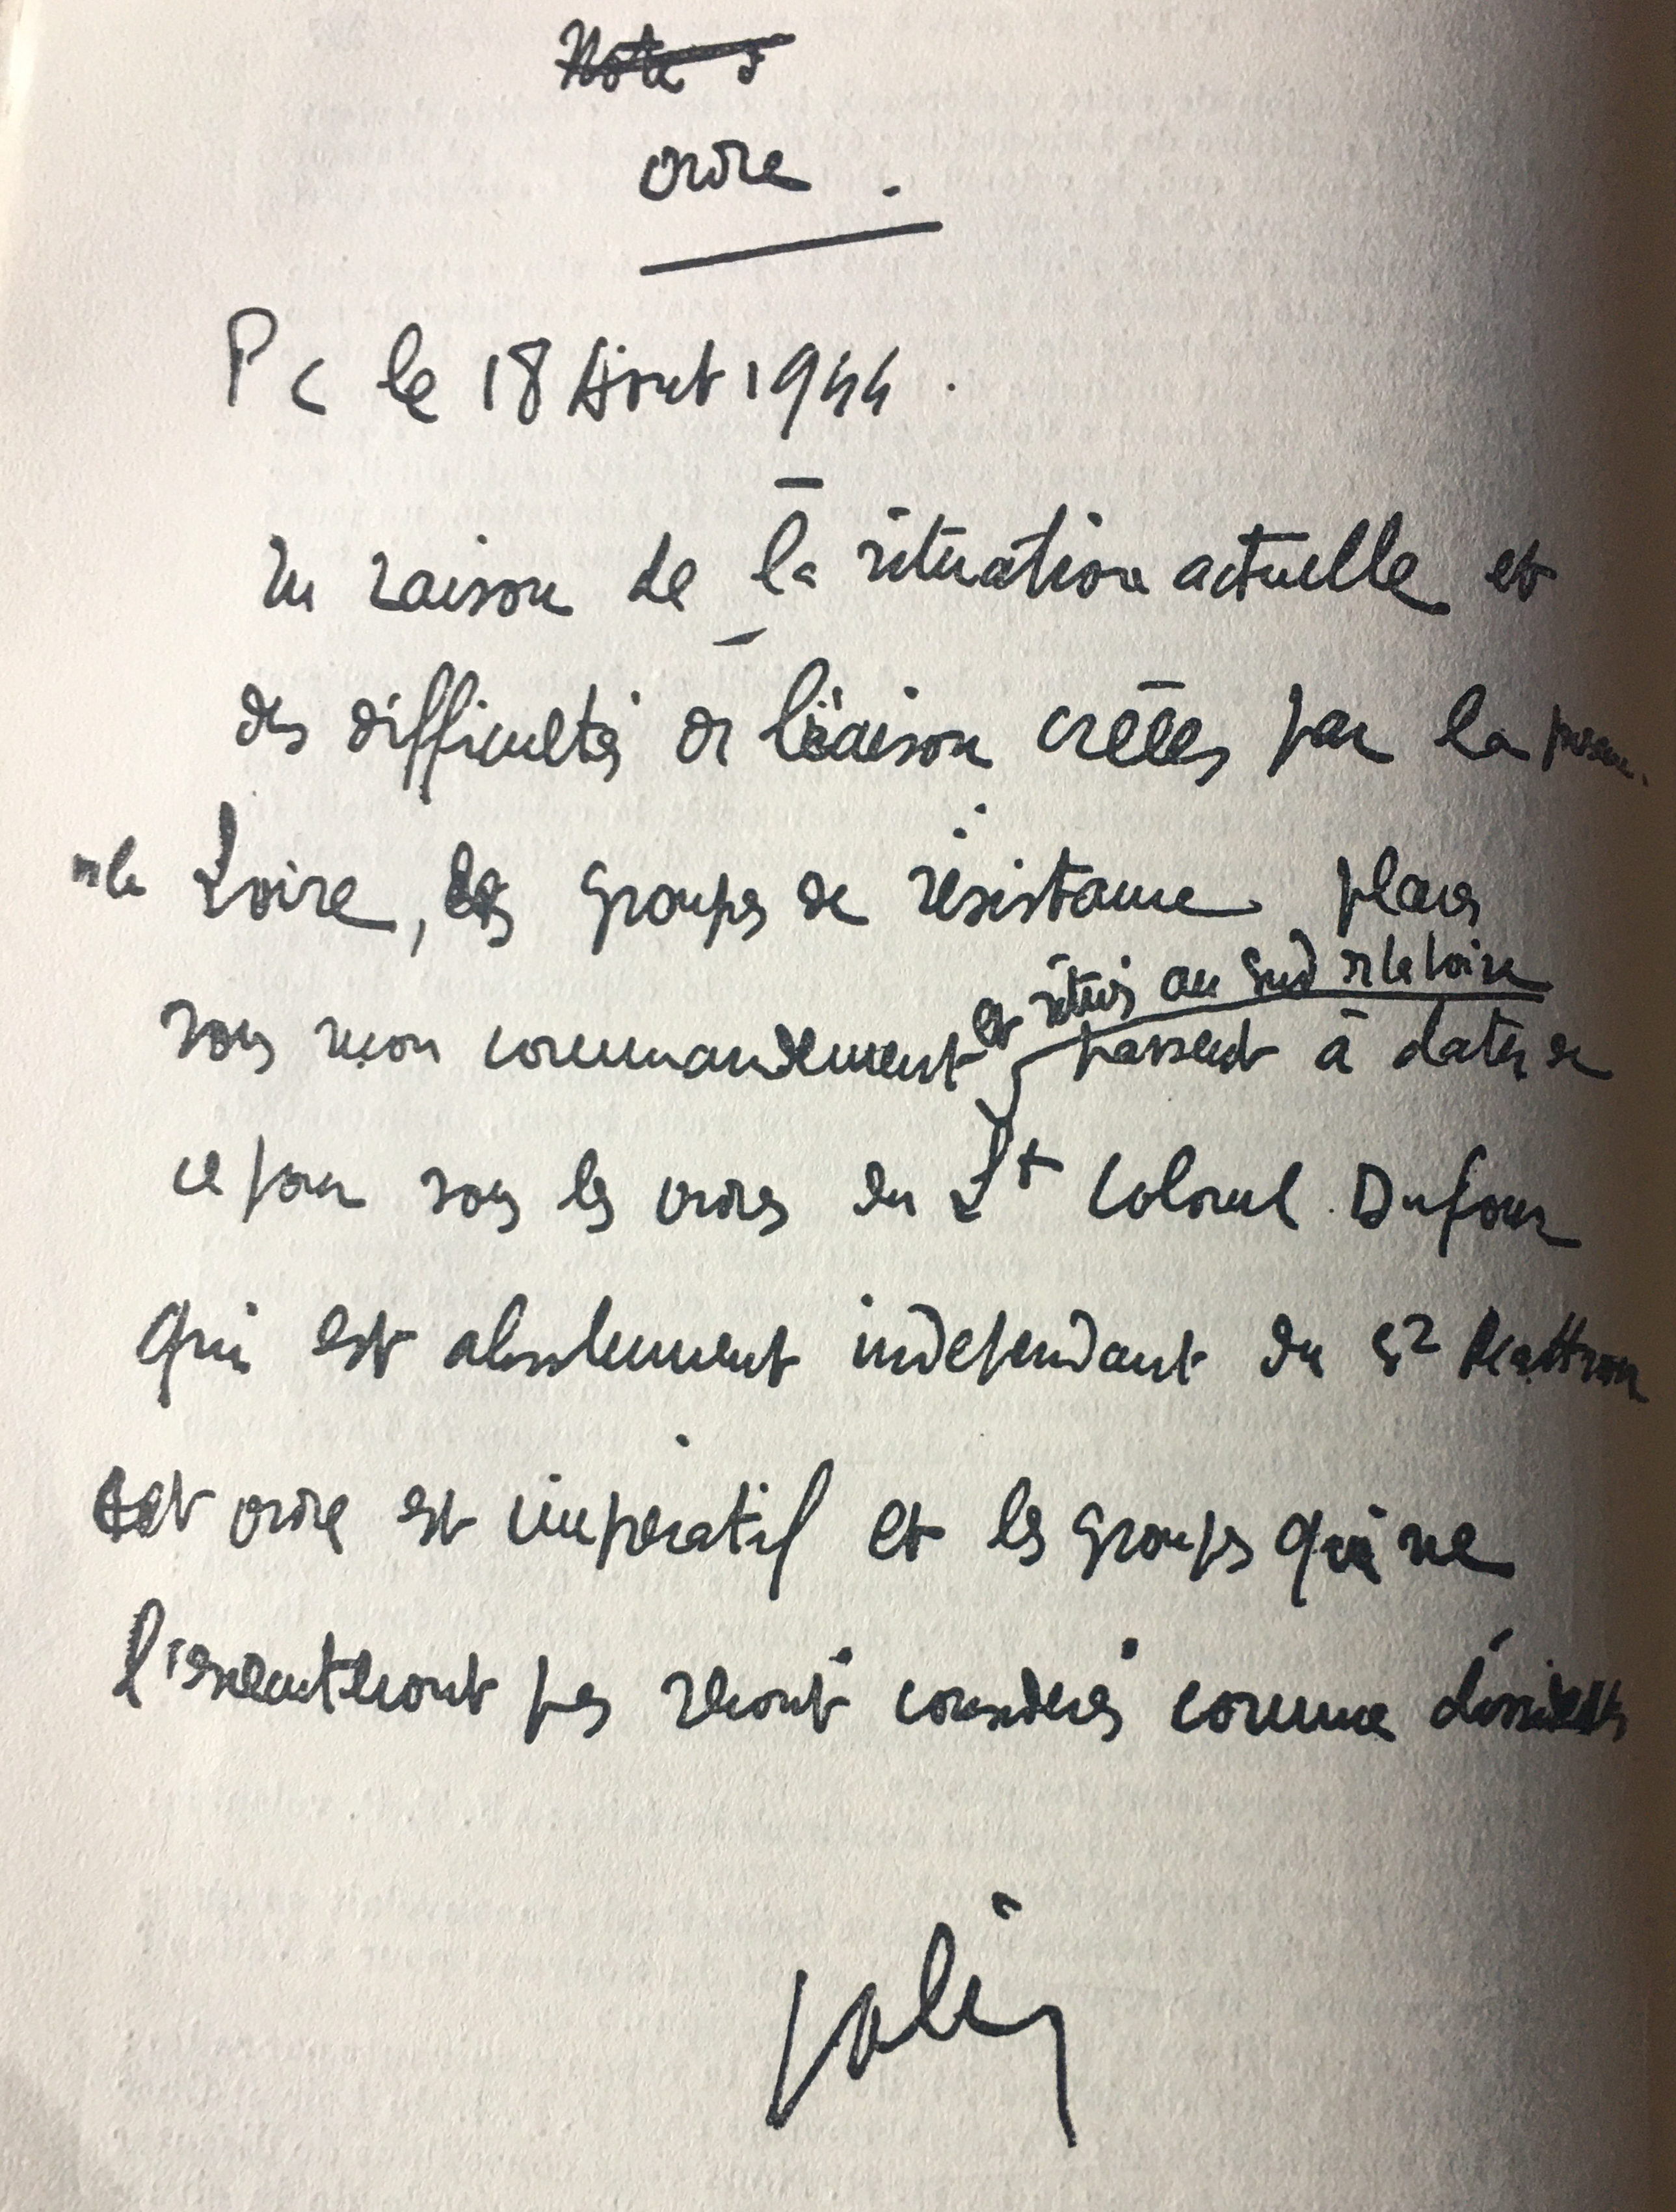 Note
ordre.
PC le 18 Aout 1944.
En raison de la situation actuelle et
des difficultés de liaison créées par la
de la Loire, les groupes de résistance placés
et situés au Sud de la Loire
sous mon commandement passent à dater de
ce jour sous les ordres du Lt Colonel Dufour
qui est absolument indépendant du
Cet ordre est impératif et les groupes qui ne
l'exécuteront pas seront considérés comme dissidents